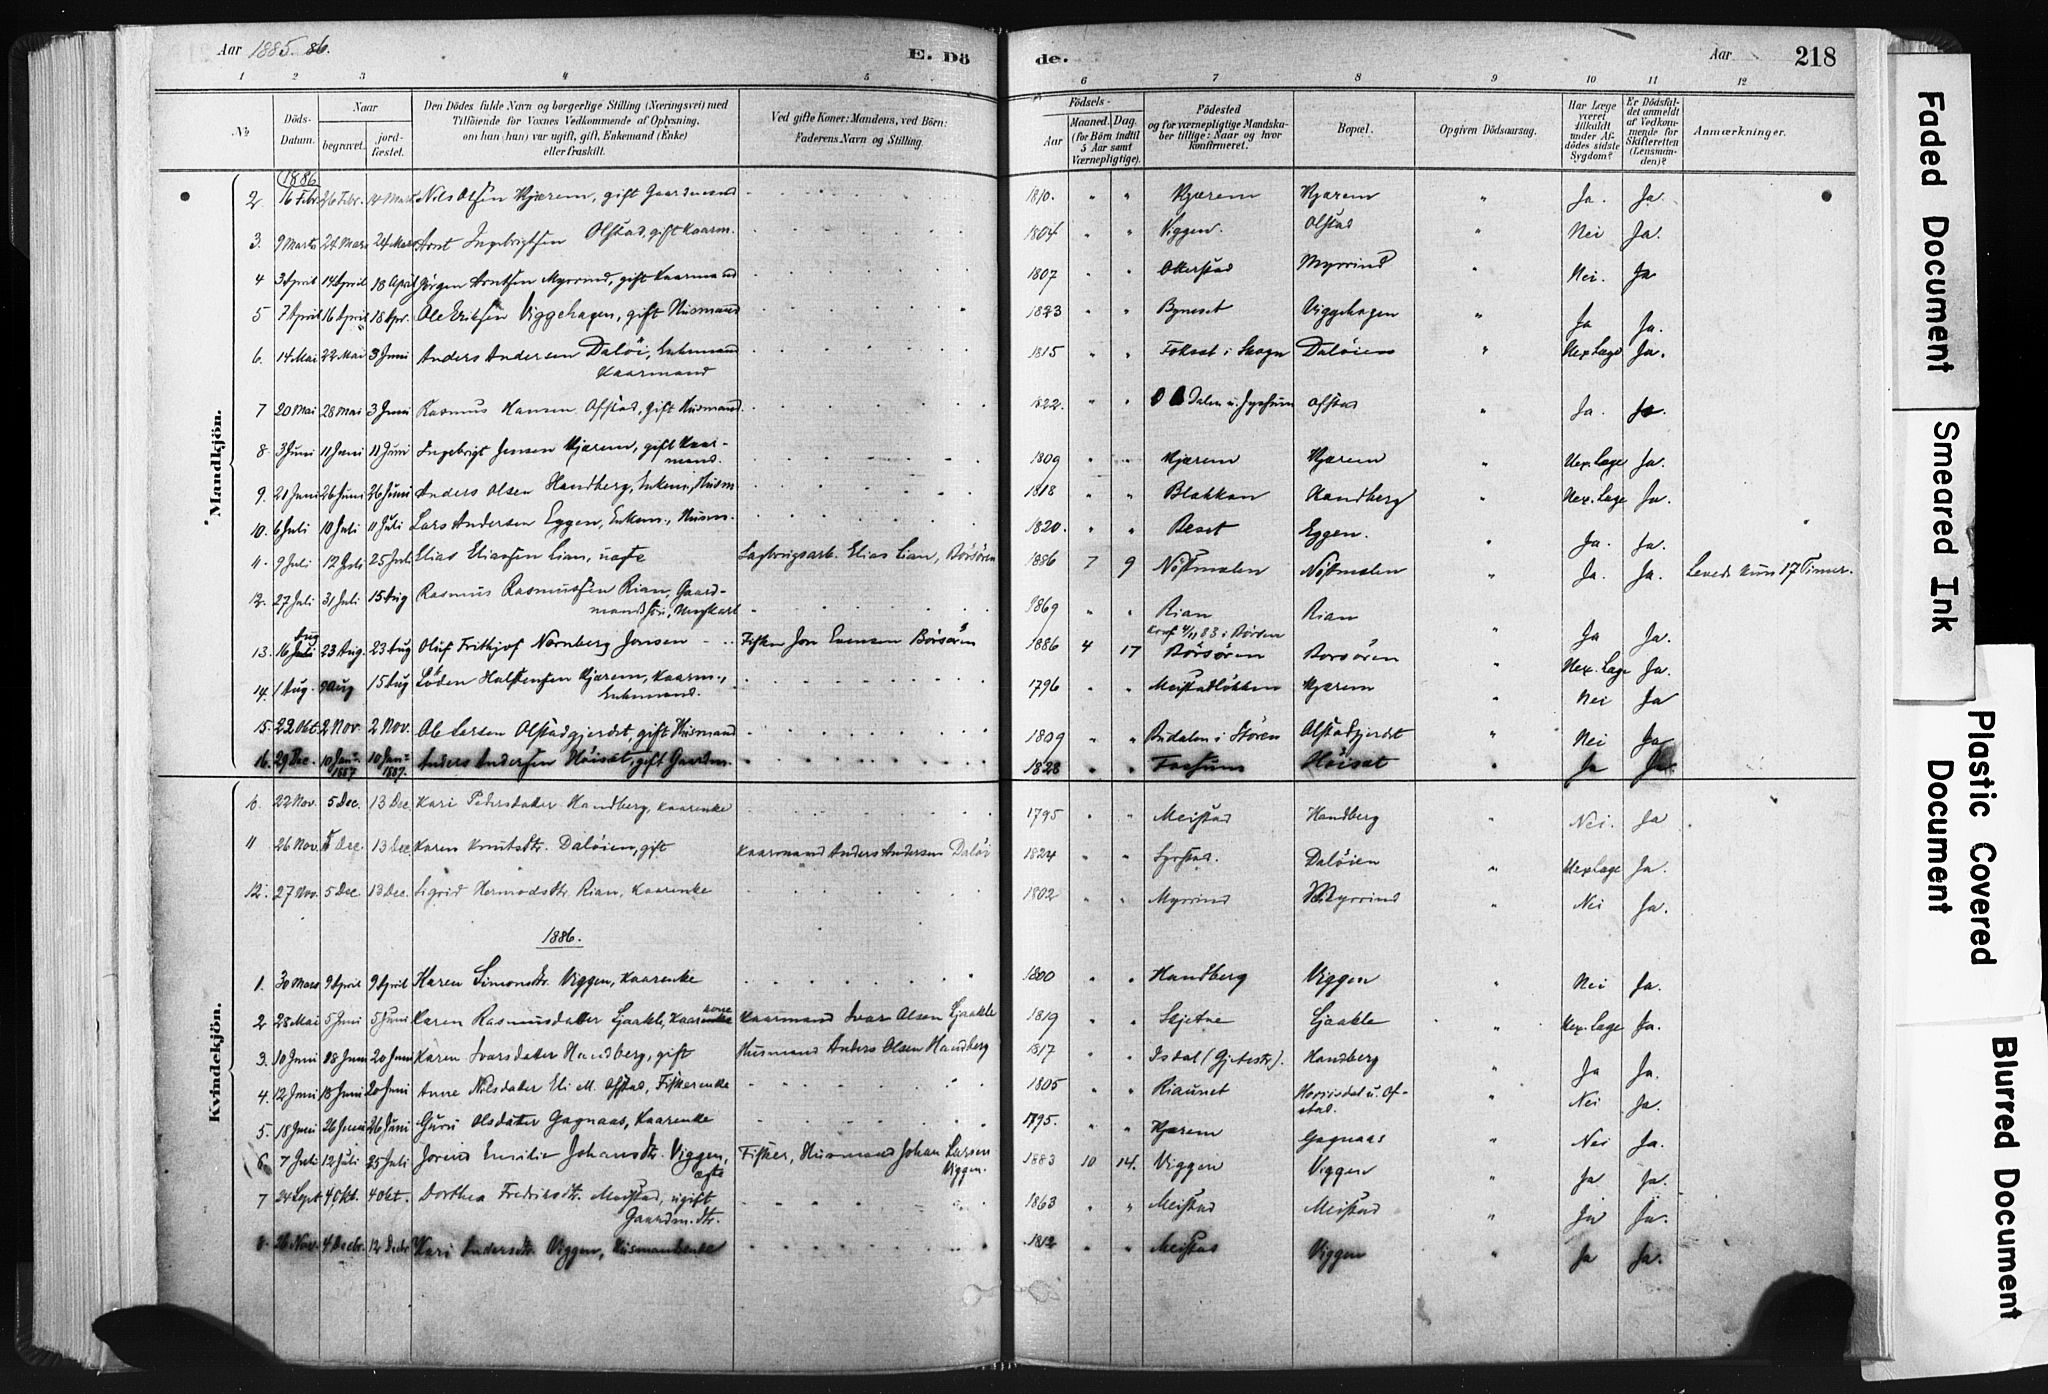 Aar 1885. 86.
E. Dö
de.
Aar
218
1 2 3 4 5 6 7 8 9 10 11 12
No
Döds-Datum.
Naar
begravet.
jordfæstet.
Den Dödes fulde Navn og borgerlige Stilling (Næringsvei) med
Tilföiende for Voxnes Vedkommende af Oplysning,
om han (hun) var ugift, gift, Enkemand (Enke)
eller fraskilt.
Ved gifte Koner: Mandens, ved Börn:
Faderens Navn og Stilling.
Födsels-
Aar
Maaned. Dag.
(for Börn indtil
5 Aar samt
Værnepligtige).
Födested
og for værnepligtige Mandska-
ber tillige: Naar og hvor
konfirmeret.
Bopæl.
Opgiven Dödsaarsag.
Har Læge
været
tilkaldt
under Af-
dödes sidste
Sygdom?
Er Dödsfal-
det anmeldt
af Vedkom-
mende for
Skifteretten
(Lensman-
den)?
Anmærkninger.
Mandkjön.
1886
2 16 Febr. 26 Febr. 14 Marts Nils Olsen Kjærem, gift Gaardmand 1810. " " Kjærem Kjærem " Ja. Ja.
3. 9 Marts 24 Mars 24 Mars Arnt Ingebrigtsen Olstad, gift Kaarm. 1804 " " Viggen. Olstad " Nei Ja.
4 3 April 14 April 18 April Jörgen Arntsen Myrrind, gift Kaarmand 1807 " " Myrrind " Nei. Ja
5 7 April 16 April 18 Apr. Ole Eriksen Viggehagen, gift Husmand 1823 " " Byneset Viggehagen " Ja Ja.
6. 14 Mai 22 Mai 3 Juni Anders Andersen Dalöi, Enkemand
Kaarmand 1815 " " Foksat i Skogn Dalöien " Ja.
7 20 Mai 28 Mai 3 Juni Rasmus Hansen Ofstad, gift Husmand. 1822. " " Ofstad " Ja. Ja.
8. 3 Juni 11 Juni 11 Juni Ingebrigt Jensen Kjærem, gift Kaar-
mand. 1809 " " Kjærem Kjærem " Ja.
9. 21 Juni 26 Juni 26 Juni Anders Olsen Handberg, Enkem., Husm. 1818 " " Blakkan Handberg " Ja.
10. 6 Juli 10 Juli 11 Juli Lars Andersen Eggen, Enkem., Husm. 1820. " " Beset Eggen. " Ja. Ja.
11. 9 Juli 12 Juli 25 Juli Elias Eliassen Lian, uægte Elias Lian, Börsören 1886 7 9 Nöstmalen Nöstmalen " Ja. Ja. Levede kun 17 Timer.
12. 27 Juli 31 Juli 15 Aug Rasmus Rasmussen Rian, Gaard-
mandssön, Ungkarl 1869 " " Rian Rian " Ja Ja.
13. 16 Aug 23 Aug. 23 Aug Oluf Frithjof Nornberg Jensen Fisker Jon Evensen Börsören 1886 4 17 Börsören Borsören " Ja.
14. 1 Aug. 9 Aug 15 Aug Loden Halstensen Kjærem, Kaarm.,
Enkemand. 1796 " " Meistadlökken Kjærem " Nei Ja
15. 22 Okt. 2 Nov. 2 Nov. Ole Larsen Olstadgjerdet, gift Husmand 1809 " " Budalen i Stören Olstadgjerdet " Nei Ja
16. 29 Dec. 10 Jan. 1887 10 Jan. 1887. Anders Andersen Höiset, gift Gaardm. 1828 " " Fossum Höiset " Ja Ja.
Kvindekjön.
22 Nov. 5 Dec. 13 Dec. Kari Pedersdatter Handberg, Kaarenke 1795 " " Meistad Handberg " Nei. Ja
11 26 Nov. 5 Dec. 13 Dec. Karen Knutsdtr. Dalöien, gift Kaarmand Anders Andersen Dalöi 1824 " " Dalöien " Ja.
12. 27 Nov. 5 Dec 13 Dec. Sigrid Hermodsdtr. Rian, Kaarenke 1802 " " Myrrind Myrrind " Nei Ja.
1886.
1. 30 Mars 9 April 9 April Karen Simonsdtr. Viggen, Kaarenke 1800 " " Handberg Viggen " Nei Ja.
2 28 Mai 5 Juni 5 Juni Karen Rasmusdatter Gjaakle, Kaarkone Kaarmand Ivar Olsen Gjaakle 1819 " " Skjetne Gjaakle " Ja.
3. 10 Juni 18 Juni 20 Juni Karen Ivarsdatter Handberg, gift Husmand Anders Olsen Handberg 1817 " " Handberg " Ja Ja.
4. 12 Juni 18 Juni 20 Juni Anne Nilsdatter Eli M. Ofstad, Fiskerenke 1805 " " Riaunet " Nei Ja.
5. 18 Juni 26 Juni 26 Juni Guru Olsdatter Gagnaas, Kaarenke 1795. " " Kjærem Gagnaas " Nei Ja.
6 7 Juli 12 Juli 25 Juli Jorend Emilie Johansdtr. Viggen,
ægte Fisker, Husmand Johan Larsen
Viggen. 1883 10 14. Viggen Viggen " Ja Ja.
7 24 Sept. 4 Okt. 4 Okt. Dorthea Fredriksdtr. Meistad, ugift
Gaardm.dtr. 1863 " " Meistad Meistad " Ja Ja.
8. 26 Nov. 4 Decbr. 12 Decbr Kari Andersdtr. Viggen, Husmandsenke 1812 " " Meistad Viggen " Ja Ja.
Faded Document
Smeared Ink
Plastic Covered
Document
Blurred Document